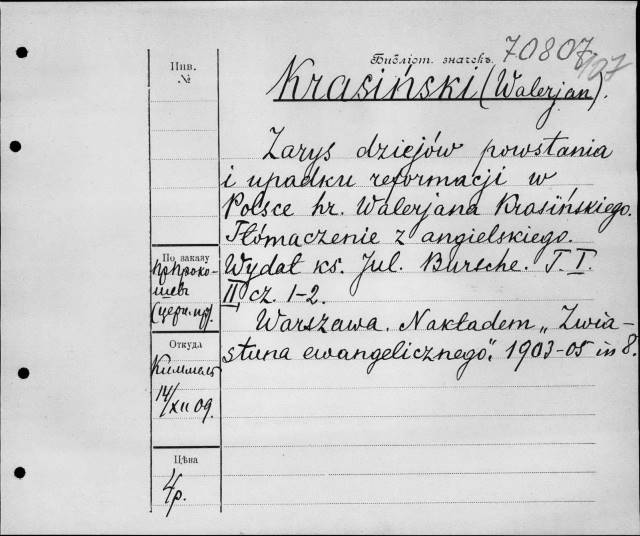 Библіот. значекъ. 70807
Инв.
№
Krasiński (Walerjan).
Zarys dziejów powstania
i upadku reformacji w
Polsce hr. Walerjana Krasińskiego.
Tłómaczenie z angielskiego.
По заказу
Wydał ks. Jul. Bursche. T. I.
II, cz. 1-2.
Warszawa. Nakładem „Zwia-
stuna ewangelicznego”. 1903-05 in 8.
Откуда
14/XII 09.
Цѣна
4 р.